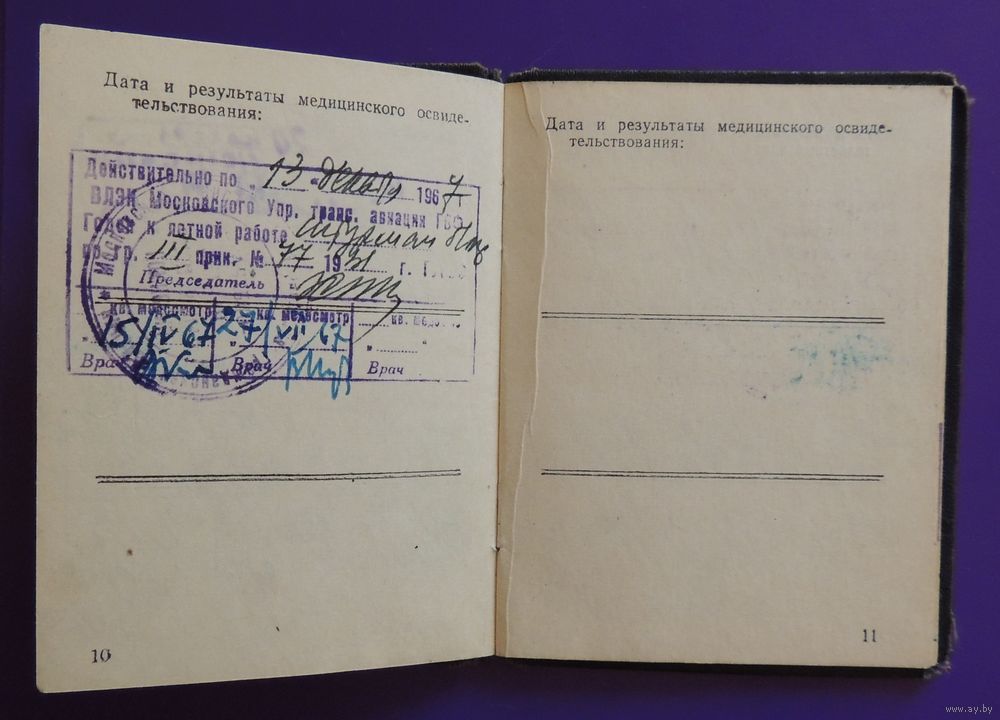 Дата и результаты медицинского освиде-
тельствования:
Действительно по „13“ декабря 1967
ВЛЭК Московского Упр. транс. авиации ГВФ
Годен к летной работе штурман
по гр. III прик. № 77 1931 г. ГУГВФ
Председатель
кв. медосмотр кв. медосмотр кв. медо
15/IV 67 27/VII 67 „ “
Врач Врач Врач
10
Дата и результаты медицинского освиде-
тельствования:
11
www.ay.by